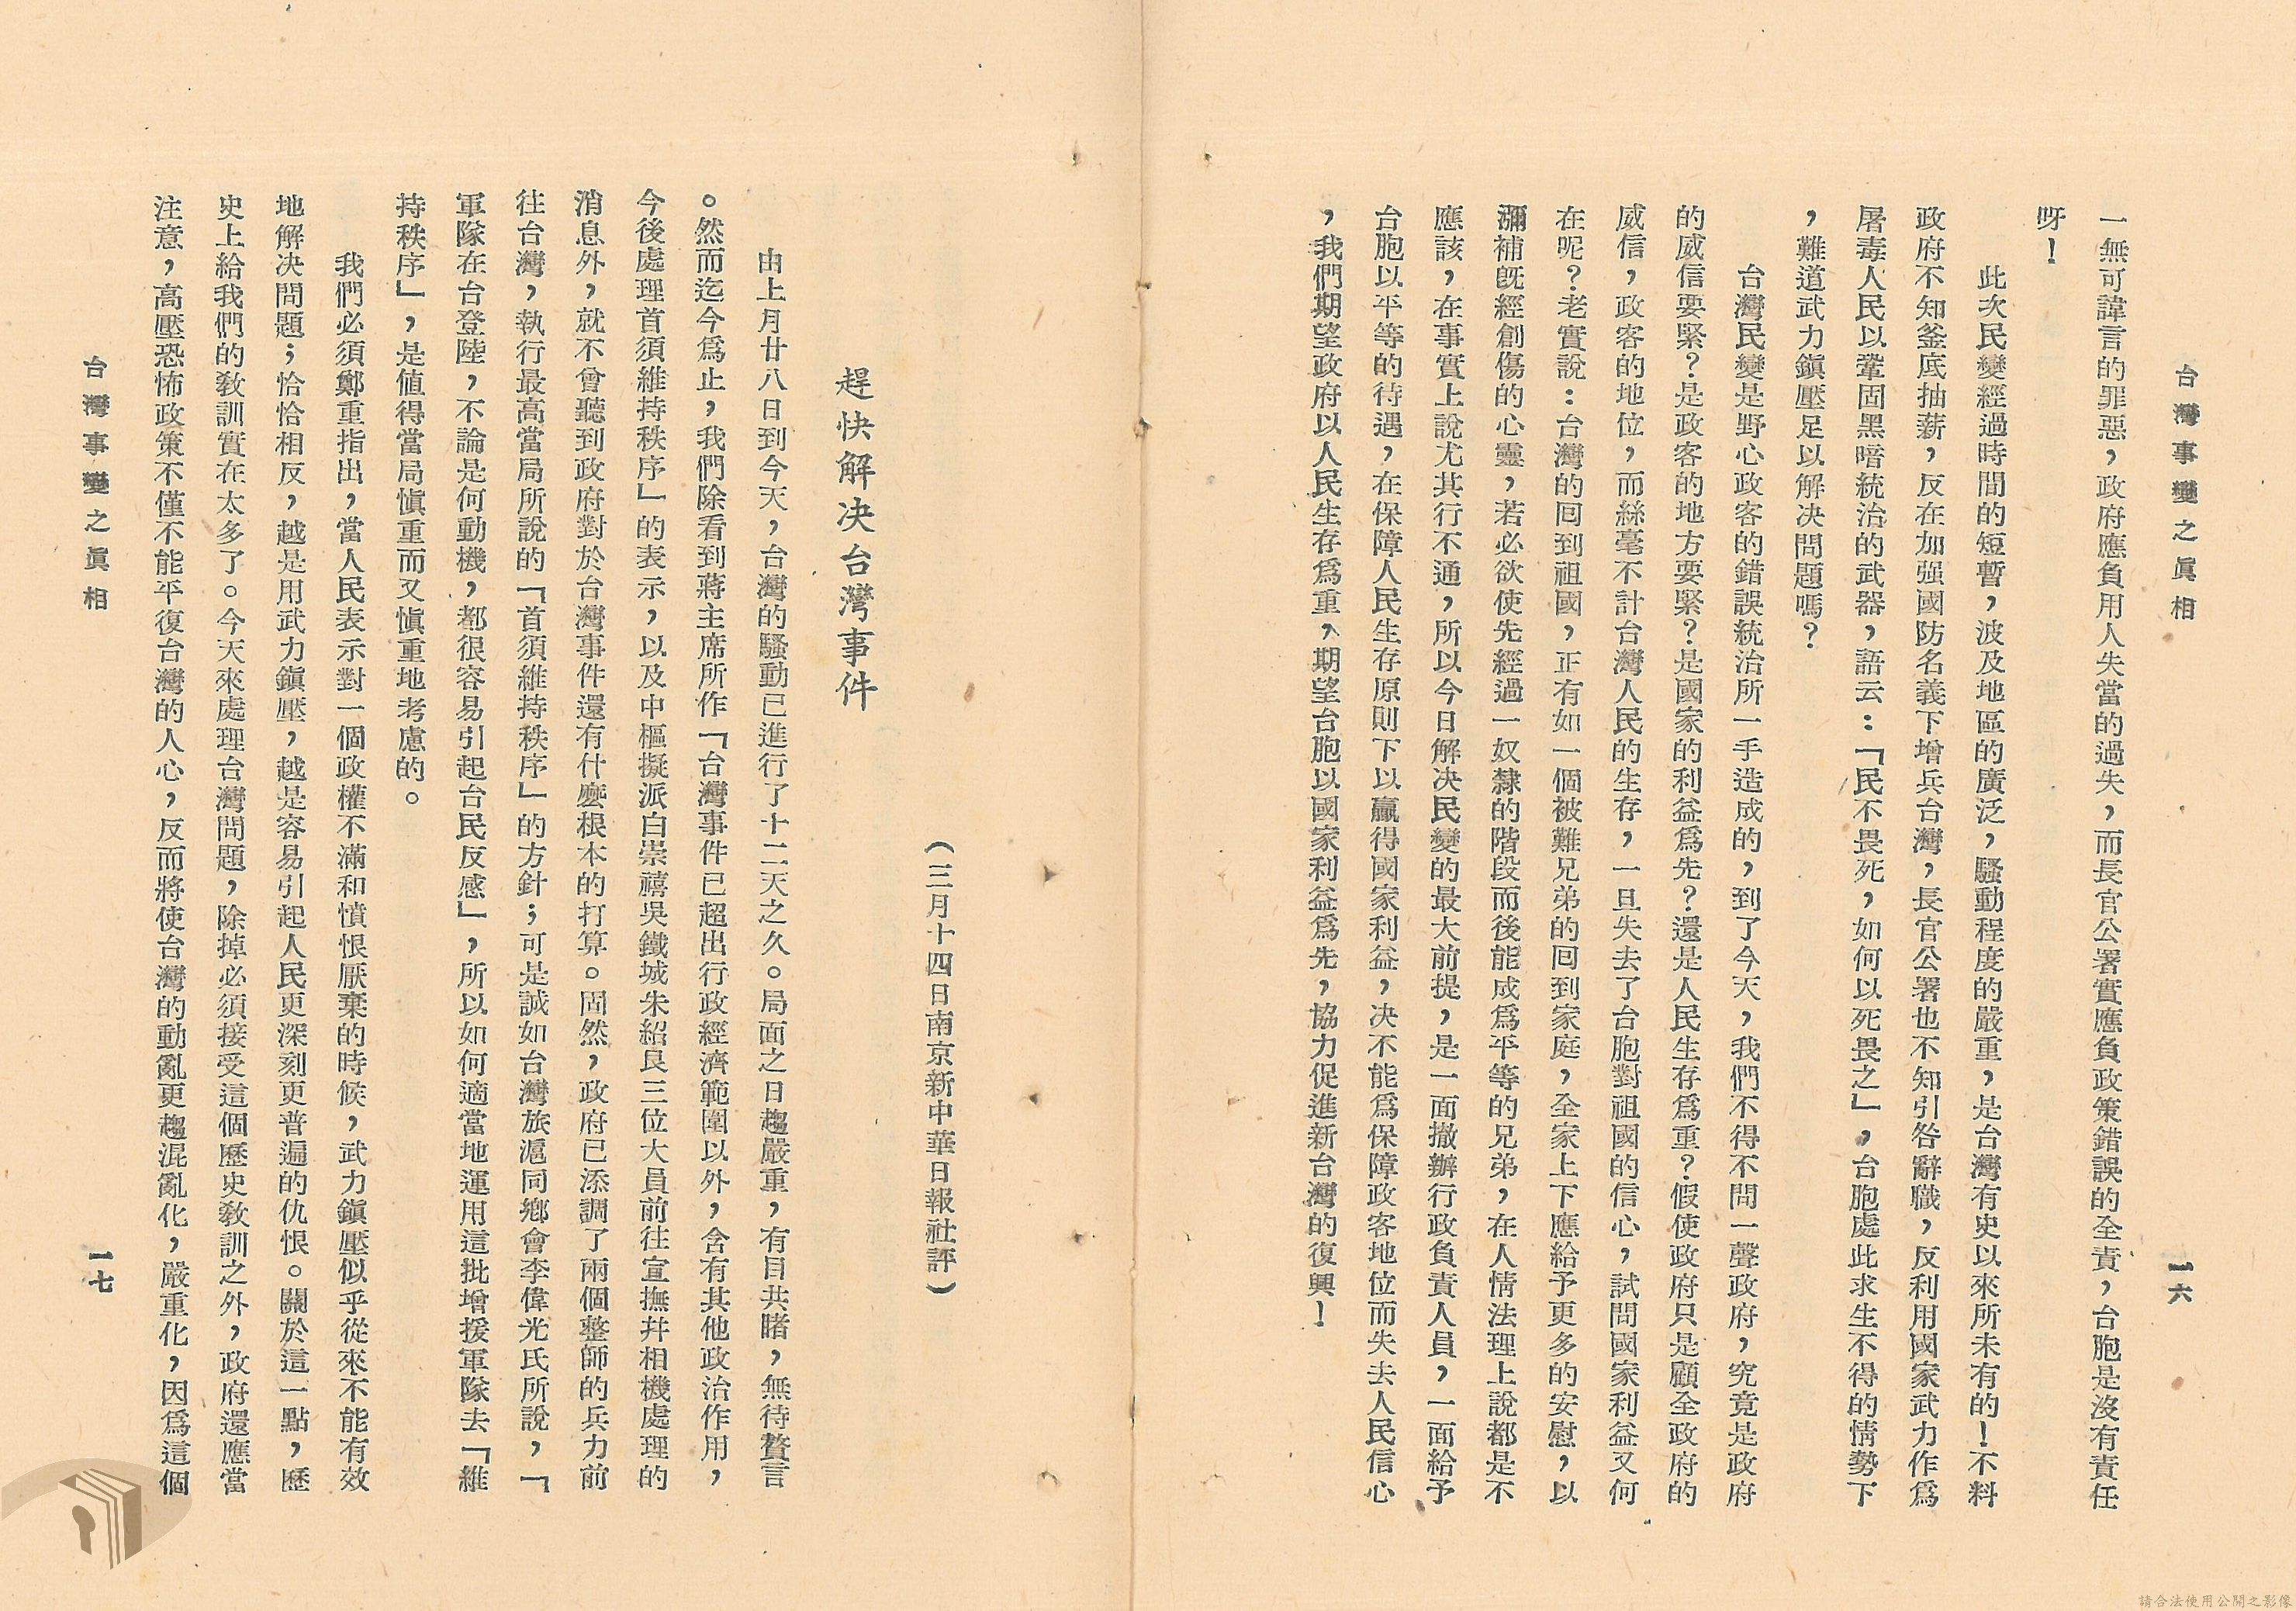 台灣事變之眞相
一六
一無可諱言的罪惡，政府應負用人失當的過失，而長官公署實應負政策錯誤的全責，台胞是沒有責任
呀！
此次民變經過時間的短暫，波及地區的廣泛，騷動程度的嚴重，是台灣有史以來所未有的！不料
政府不知釜底抽薪，反在加强國防名義下增兵台灣，長官公署也不知引咎辭職，反利用國家武力作爲
屠毒人民以鞏固黑暗統治的武器，語云：「民不畏死，如何以死畏之」，台胞處此求生不得的情勢下
，難道武力鎭壓足以解决問題嗎？
台灣民變是野心政客的錯誤統治所一手造成的，到了今天，我們不得不問一聲政府，究竟是政府
的威信要緊？是政客的地方要緊？是國家的利益爲先？還是人民生存爲重？假使政府只是顧全政府的
威信，政客的地位，而絲毫不計台灣人民的生存，一旦失去了台胞對祖國的信心，試問國家利益又何
在呢？老實說：台灣的回到祖國，正有如一個被難兄弟的回到家庭，全家上下應給予更多的安慰，以
瀰補旣經創傷的心靈，若必欲使先經過一奴隸的階段而後能成爲平等的兄弟，在人情法理上說都是不
應該，在事實上說尤其行不通，所以今日解决民變的最大前提，是一面撤辦行政負責人員，一面給予
台胞以平等的待遇，在保障人民生存原則下以贏得國家利益，决不能爲保障政客地位而失去人民信心
，我們期望政府以人民生存爲重，期望台胞以國家利益爲先，協力促進新台灣的復興！
（三月十四日南京新中華日報社評）
趕快解决台灣事件
由上月廿八日到今天，台灣的騷動已進行了十二天之久。局面之日趨嚴重，有目共睹，無待贅言
。然而迄今爲止，我們除看到蔣主席所作「台灣事件已超出行政經濟範圍以外，含有其他政治作用，
今後處理首須維持秩序」的表示，以及中樞擬派白崇禧吳鐵城朱紹良三位大員前往宣撫幷相機處理的
消息外，就不曾聽到政府對於台灣事件還有什麼根本的打算。固然，政府已添調了兩個整師的兵力前
往台灣，執行最高當局所說的「首須維持秩序」的方針；可是誠如台灣旅滬同鄉會李偉光氏所說，「
軍隊在台登陸，不論是何動機，都很容易引起台民反感」，所以如何適當地運用這批增援軍隊去「維
持秩序」，是值得當局愼重而又愼重地考慮的。
我們必須鄭重指出，當人民表示對一個政權不滿和憤恨厭棄的時候，武力鎭壓似乎從來不能有效
地解决問題；恰恰相反，越是用武力鎭壓，越是容易引起人民更深刻更普遍的仇恨。關於這一點，歷
史上給我們的敎訓實在太多了。今天來處理台灣問題，除掉必須接受這個歷史敎訓之外，政府還應當
注意，高壓恐怖政策不僅不能平復台灣的人心，反而將使台灣的動亂更趨混亂化，嚴重化，因爲這個
台灣事變之眞相
一七
請合法使用公開之影像